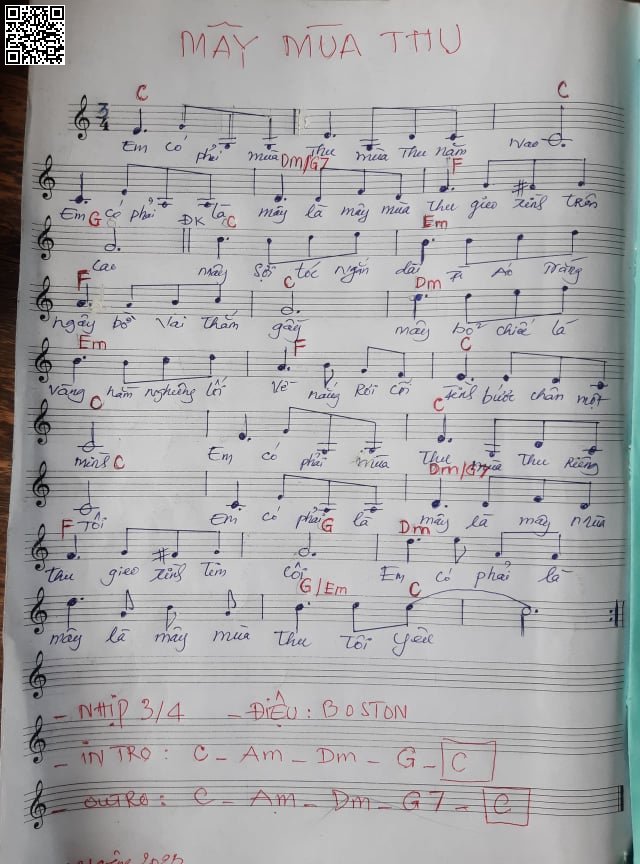 MÂY MÙA THU
C C
3/4
Em có phải mùa Thu mùa Thu năm nao
Dm/G7 F
Em có phải là mây là mây mùa thu gieo trên
G ĐK C Em
Cao mây Sợi tóc ngắn dài Áo Trắng
F C Dm
ngây bởi Vai Thắm gầy mây bờ chiếc lá
Em F C
Vàng năm nghiêng lối Về nắng Rơi bước chân một
C C
mình Em có phải mùa Thu mùa Thu Riêng
C Dm/G7
Tôi Em có phải là mây là mây mùa
F G Dm
thu gieo tim Côi Em có phải là
G/Em C
mây là mây mùa thu Tôi yêu
- NHỊP 3/4 - ĐIỆU: BOSTON
- INTRO: C - Am - Dm - G - C
- OUTRO: C - Am - Dm - G7 - C